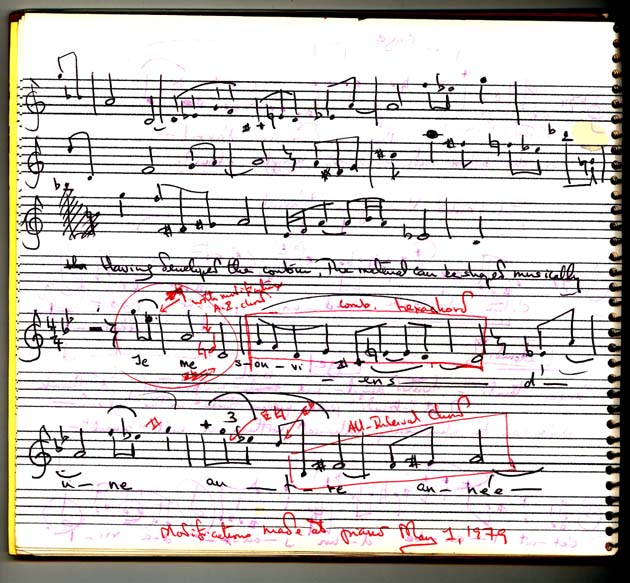 Having developed the contour, The material can be shaped musically
with modification
A-I. chord
comb. hexachord
Je me sou-vi - ens d'-
3
All-Interval Chord
u - ne au - t - re an - née -
Modifications made at piano May 1, 1979